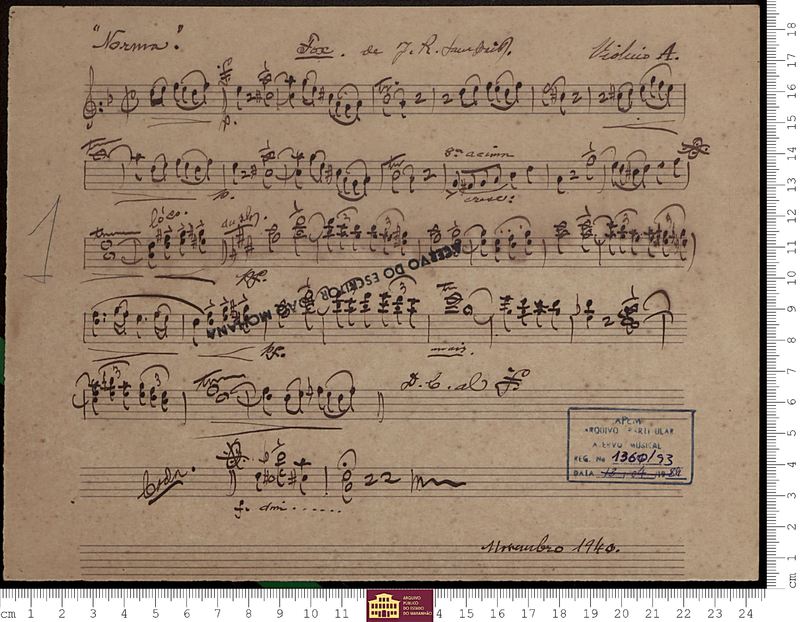 "Norma".
Fox. de J. R.
Violino A.
8ª acima
cresc:
1
lóco.
ACERVO DO ESCRITOR
MOHANA
mais.
D. C. al
Coda.
f. dmi......
APEM
ARQUIVO PARTICULAR
ACERVO MUSICAL
REG. No 1360/93
DATA
Novembro 1940.
cm 1 2 3 4 5 6 7 8 9 10 11 12 13 14 15 16 17 18
cm 1 2 3 4 5 6 7 8 9 10 11
ARQUIVO
PÚBLICO
DO ESTADO
DO MARANHÃO
14 15 16 17 18 19 20 21 22 23 24